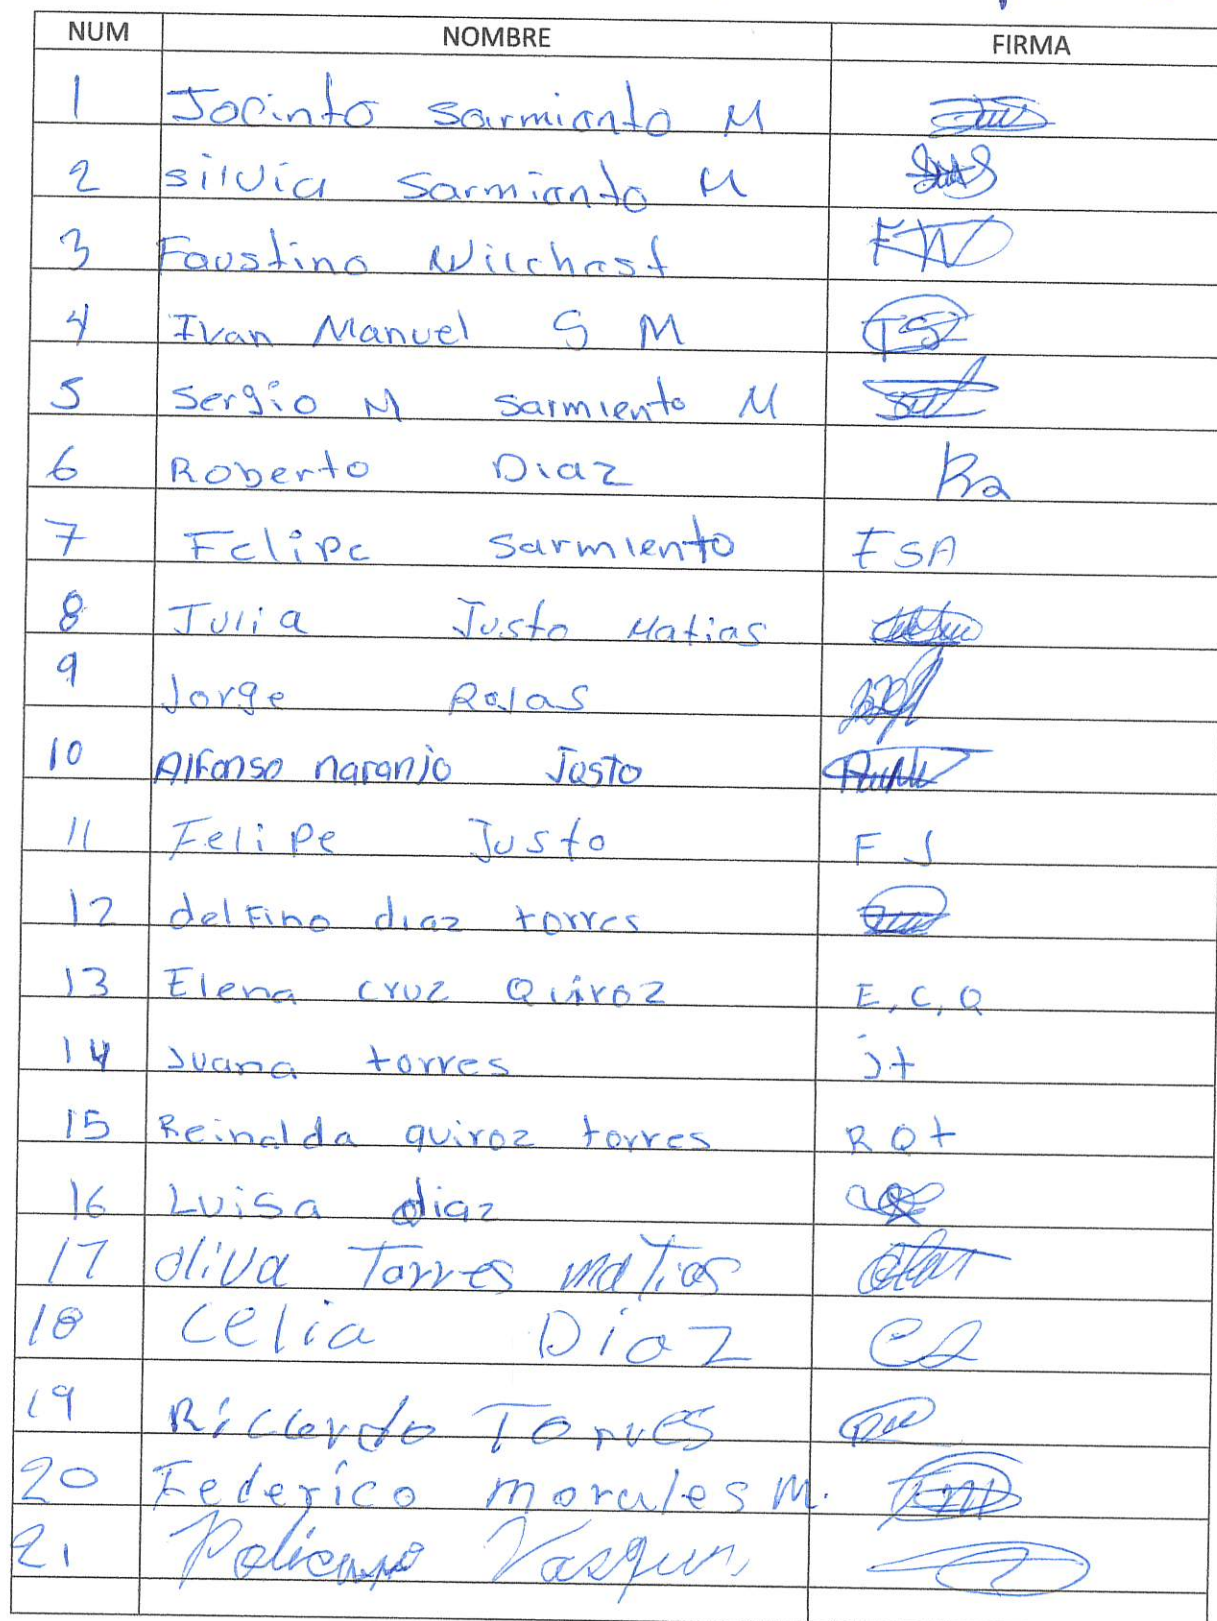 NUM NOMBRE FIRMA
1 Jocinto sarmianto M
2 silvia sarmianto M
3 Faustino Wilchast
4 Ivan Manuel S M
5 sergio M sarmiento M
6 Roberto Diaz
7 Felipe sarmiento FSA
8 Julia Justo Matias
9 Jorge Rojas
10 Alfonso naranjo Justo
11 Felipe Justo F J
12 delfino diaz torres
13 Elena cruz Quiroz E, C, Q
14 Juana torres jt
15 Reinalda quiroz torres R Q t
16 Luisa diaz
17 oliva Torres maTias
18 celia Diaz
19 Riccardo Torres
20 Federico morales M.
21 Policarpo